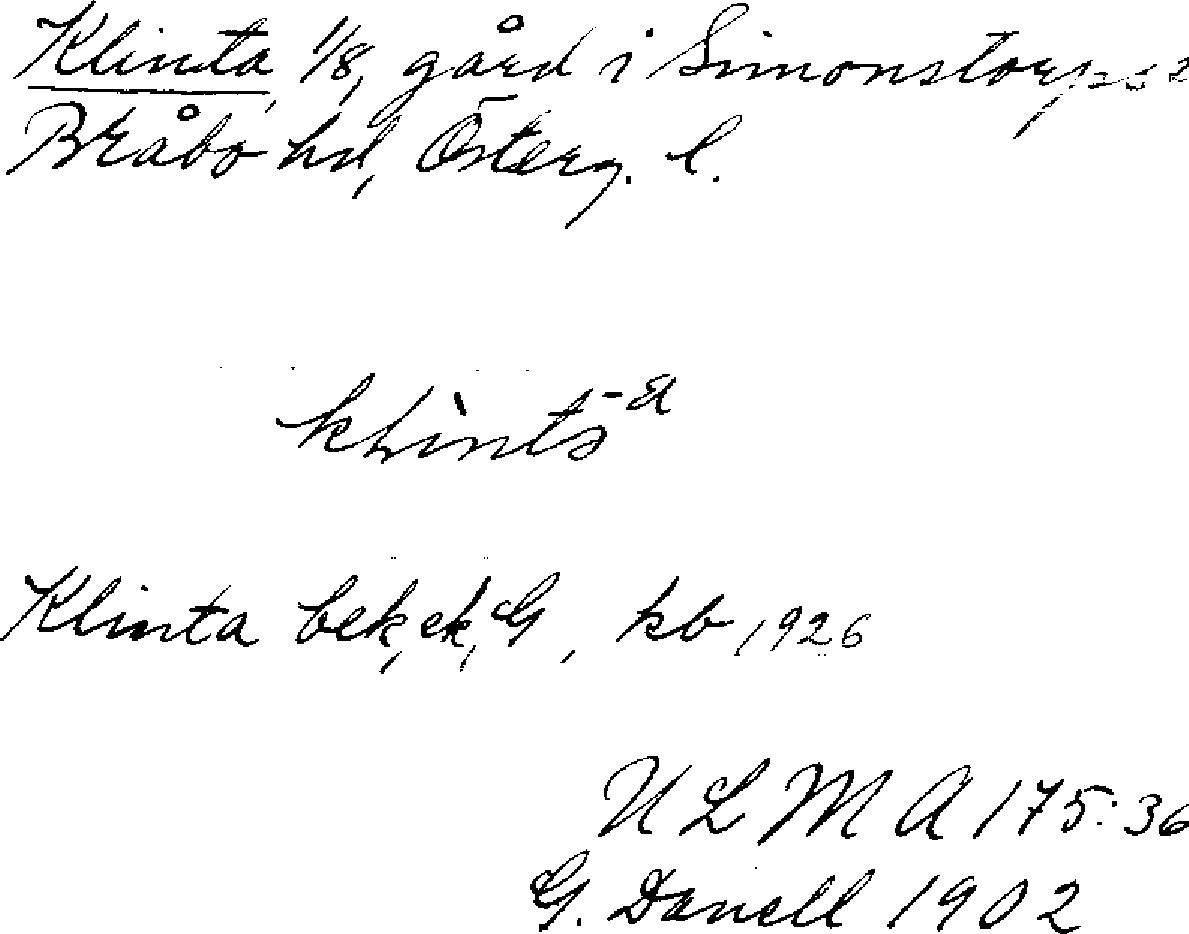 Klinta, 1/8, gård i Simonstorps
Bråbo hd, Österg. l.
Klinta bek, ek, G, kb, 1926
ULMA 175:36
G. Danell 1902